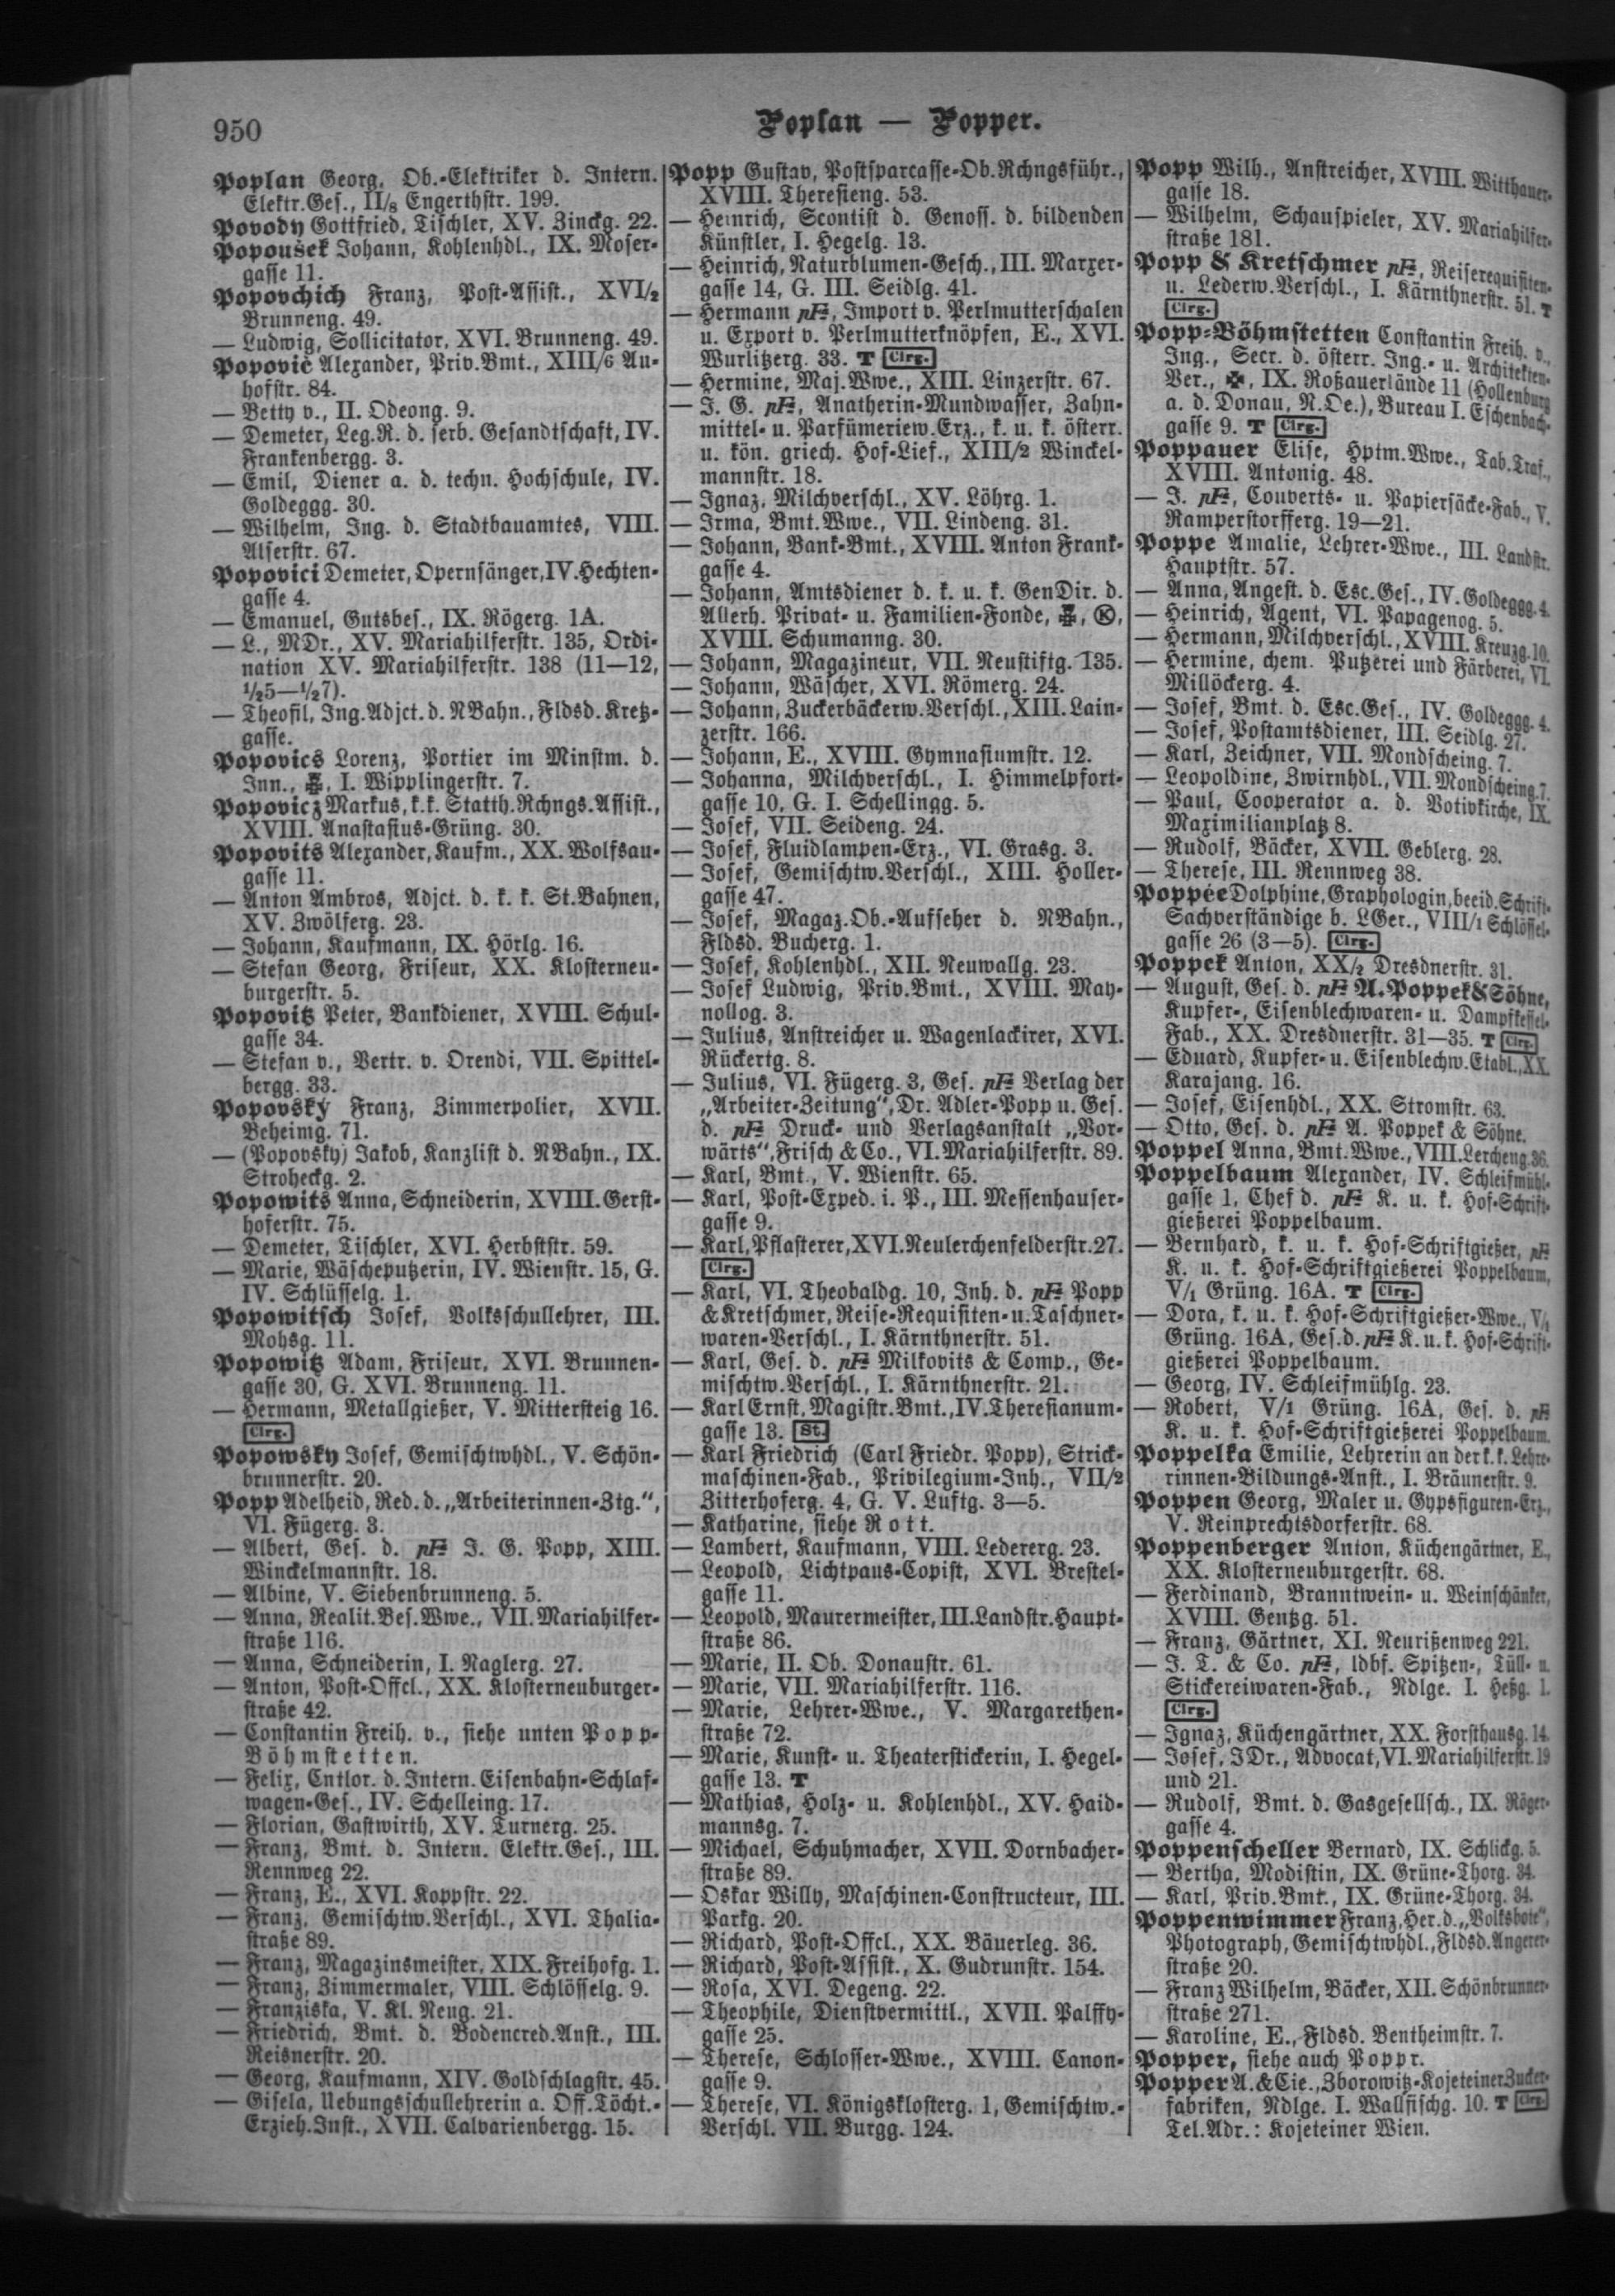 950
Poplan — Popper.
Poplan Georg, Ob.-Elektriker d. Intern.
Elektr.Ges., II/8 Engerthstr. 199.
Povody Gottfried, Tischler, XV. Zinckg. 22.
Popoušek Johann, Kohlenhdl., IX. Moser-
gasse 11.
Popovchich Franz, Post-Assist., XVI/2
Brunneng. 49.
— Ludwig, Sollicitator, XVI. Brunneng. 49.
Popović Alexander, Priv.Bmt., XIII/6 Au-
hofstr. 84.
— Betty v., II. Odeong. 9.
— Demeter, Leg.R. d. serb. Gesandtschaft, IV.
Frankenbergg. 3.
— Emil, Diener a. d. techn. Hochschule, IV.
Goldeggg. 30.
— Wilhelm, Ing. d. Stadtbauamtes, VIII.
Alserstr. 67.
Popovici Demeter, Opernsänger, IV. Hechten-
gasse 4.
— Emanuel, Gutsbes., IX. Rögerg. 1A.
— L., MDr., XV. Mariahilferstr. 135, Ordi-
nation XV. Mariahilferstr. 138 (11—12,
1/25—1/27).
— Theofil, Ing.Adjct. d. NBahn., Fldsd. Kretz-
gasse.
Popovics Lorenz, Portier im Minstm. d.
Inn., I. Wipplingerstr. 7.
Popovicz Markus, k.k. Statth.Rchngs.Assist.,
XVIII. Anastasius-Grüng. 30.
Popovits Alexander, Kaufm., XX. Wolfsau-
gasse 11.
— Anton Ambros, Adjct. d. k. k. St.Bahnen,
XV. Zwölferg. 23.
— Johann, Kaufmann, IX. Hörlg. 16.
— Stefan Georg, Friseur, XX. Klosterneu-
burgerstr. 5.
Popovitz Peter, Bankdiener, XVIII. Schul-
gasse 34.
— Stefan v., Vertr. v. Orendi, VII. Spittel-
bergg. 33.
Popovský Franz, Zimmerpolier, XVII.
Beheimg. 71.
— (Popovsky) Jakob, Kanzlist d. NBahn., IX.
Stroheckg. 2.
Popowits Anna, Schneiderin, XVIII. Gerst-
hoferstr. 75.
— Demeter, Tischler, XVI. Herbststr. 59.
— Marie, Wäscheputzerin, IV. Wienstr. 15, G.
IV. Schlüsselg. 1.
Popowitsch Josef, Volksschullehrer, III.
Mohsg. 11.
Popowitz Adam, Friseur, XVI. Brunnen-
gasse 30, G. XVI. Brunneng. 11.
— Hermann, Metallgießer, V. Mittersteig 16.
Clrg.
Popowsky Josef, Gemischtwhdl., V. Schön-
brunnerstr. 20.
Popp Adelheid, Red. d. „Arbeiterinnen-Ztg.“,
VI. Fügerg. 3.
— Albert, Ges. d. pF J. G. Popp, XIII.
Winckelmannstr. 18.
— Albine, V. Siebenbrunneng. 5.
— Anna, Realit.Bes.Wwe., VII. Mariahilfer-
straße 116.
— Anna, Schneiderin, I. Naglerg. 27.
— Anton, Post-Offcl., XX. Klosterneuburger-
straße 42.
— Constantin Freih. v., siehe unten Popp-
Böhmstetten.
— Felix, Cntlor. d. Intern. Eisenbahn-Schlaf-
wagen-Ges., IV. Schelleing. 17.
— Florian, Gastwirth, XV. Turnerg. 25.
— Franz, Bmt. d. Intern. Elektr.Ges., III.
Rennweg 22.
— Franz, E., XVI. Koppstr. 22.
— Franz, Gemischtw.Verschl., XVI. Thalia-
straße 89.
— Franz, Magazinsmeister, XIX. Freihofg. 1.
— Franz, Zimmermaler, VIII. Schlösselg. 9.
— Franziska, V. Kl. Neug. 21.
— Friedrich, Bmt. d. Bodencred.Anst., III.
Reisnerstr. 20.
— Georg, Kaufmann, XIV. Goldschlagstr. 45.
— Gisela, Uebungsschullehrerin a. Off.Töcht.-
Erzieh.Inst., XVII. Calvarienbergg. 15.
Popp Gustav, Postsparcasse-Ob.Rchngsführ.,
XVIII. Theresieng. 53.
— Heinrich, Scontist d. Genoss. d. bildenden
Künstler, I. Hegelg. 13.
— Heinrich, Naturblumen-Gesch., III. Marxer-
gasse 14, G. III. Seidlg. 41.
— Hermann pF, Import v. Perlmutterschalen
u. Export v. Perlmutterknöpfen, E., XVI.
Wurlitzerg. 33. T Clrg.
— Hermine, Maj.Wwe., XIII. Linzerstr. 67.
— J. G. pF, Anatherin-Mundwasser, Zahn-
mittel- u. Parfümeriew.Erz., k. u. k. österr.
u. kön. griech. Hof-Lief., XIII/2 Winckel-
mannstr. 18.
— Ignaz, Milchverschl., XV. Löhrg. 1.
— Irma, Bmt.Wwe., VII. Lindeng. 31.
— Johann, Bank-Bmt., XVIII. Anton Frank-
gasse 4.
— Johann, Amtsdiener d. k. u. k. GenDir. d.
Allerh. Privat- u. Familien-Fonde, Ⓚ,
XVIII. Schumanng. 30.
— Johann, Magazineur, VII. Neustiftg. 135.
— Johann, Wäscher, XVI. Römerg. 24.
— Johann, Zuckerbäckerw.Verschl., XIII. Lain-
zerstr. 166.
— Johann, E., XVIII. Gymnasiumstr. 12.
— Johanna, Milchverschl., I. Himmelpfort-
gasse 10, G. I. Schellingg. 5.
— Josef, VII. Seideng. 24.
— Josef, Fluidlampen-Erz., VI. Grasg. 3.
— Josef, Gemischtw.Verschl., XIII. Holler-
gasse 47.
— Josef, Magaz.Ob.-Aufseher d. NBahn.,
Fldsd. Bucherg. 1.
— Josef, Kohlenhdl., XII. Neuwallg. 23.
— Josef Ludwig, Priv.Bmt., XVIII. May-
nollog. 3.
— Julius, Anstreicher u. Wagenlackirer, XVI.
Rückertg. 8.
— Julius, VI. Fügerg. 3, Ges. pF Verlag der
„Arbeiter-Zeitung“, Dr. Adler-Popp u. Ges.
d. pF Druck- und Verlagsanstalt „Vor-
wärts“, Frisch & Co., VI. Mariahilferstr. 89.
— Karl, Bmt., V. Wienstr. 65.
— Karl, Post-Exped. i. P., III. Messenhauser-
gasse 9.
— Karl, Pflasterer, XVI. Neulerchenfelderstr. 27.
Clrg.
— Karl, VI. Theobaldg. 10, Inh. d. pF Popp
& Kretschmer, Reise-Requisiten- u. Taschner-
waren-Verschl., I. Kärnthnerstr. 51.
— Karl, Ges. d. pF Milkovits & Comp., Ge-
mischtw.Verschl., I. Kärnthnerstr. 21.
— Karl Ernst, Magistr.Bmt., IV. Theresianum-
gasse 13. St.
— Karl Friedrich (Carl Friedr. Popp), Strick-
maschinen-Fab., Privilegium-Inh., VII/2
Zitterhoferg. 4, G. V. Luftg. 3—5.
— Katharine, siehe Rott.
— Lambert, Kaufmann, VIII. Ledererg. 23.
— Leopold, Lichtpaus-Copist, XVI. Brestel-
gasse 11.
— Leopold, Maurermeister, III. Landstr. Haupt-
straße 86.
— Marie, II. Ob. Donaustr. 61.
— Marie, VII. Mariahilferstr. 116.
— Marie, Lehrer-Wwe., V. Margarethen-
straße 72.
— Marie, Kunst- u. Theaterstickerin, I. Hegel-
gasse 13. T
— Mathias, Holz- u. Kohlenhdl., XV. Haid-
mannsg. 7.
— Michael, Schuhmacher, XVII. Dornbacher-
straße 89.
— Oskar Willy, Maschinen-Constructeur, III.
Parkg. 20.
— Richard, Post-Offcl., XX. Bäuerleg. 36.
— Richard, Post-Assist., X. Gudrunstr. 154.
— Rosa, XVI. Degeng. 22.
— Theophile, Dienstvermittl., XVII. Palffy-
gasse 25.
— Therese, Schlosser-Wwe., XVIII. Canon-
gasse 9.
— Therese, VI. Königsklosterg. 1, Gemischtw.-
Verschl. VII. Burgg. 124.
Popp Wilh., Anstreicher, XVIII. Witthauer-
gasse 18.
— Wilhelm, Schauspieler, XV. Mariahilfer-
straße 181.
Popp & Kretschmer pF, Reiserequisiten-
u. Lederw.Verschl., I. Kärnthnerstr. 51. T
Clrg.
Popp-Böhmstetten Constantin Freih. v.,
Ing., Secr. d. österr. Ing.- u. Architekten-
Ver., ✠, IX. Roßauerlände 11 (Hollenburg
a. d. Donau, N.Oe.), Bureau I. Eschenbach-
gasse 9. T Clrg.
Poppauer Elise, Hptm.Wwe., Tab.Traf.,
XVIII. Antonig. 48.
— J. pF, Couverts- u. Papiersäcke-Fab., V.
Ramperstorfferg. 19—21.
Poppe Amalie, Lehrer-Wwe., III. Landstr.
Hauptstr. 57.
— Anna, Angest. d. Esc.Ges., IV. Goldeggg. 4.
— Heinrich, Agent, VI. Papagenog. 5.
— Hermann, Milchverschl., XVIII. Kreuzg. 10.
— Hermine, chem. Putzerei und Färberei, VI.
Millöckerg. 4.
— Josef, Bmt. d. Esc.Ges., IV. Goldeggg. 4.
— Josef, Postamtsdiener, III. Seidlg. 27.
— Karl, Zeichner, VII. Mondscheing. 7.
— Leopoldine, Zwirnhdl., VII. Mondscheing. 7.
— Paul, Cooperator a. d. Votivkirche, IX.
Maximilianplatz 8.
— Rudolf, Bäcker, XVII. Geblerg. 28.
— Therese, III. Rennweg 38.
Poppée Dolphine, Graphologin, beeid. Schrift-
Sachverständige b. LGer., VIII/1 Schlössel-
gasse 26 (3—5). Clrg.
Poppek Anton, XX/2 Dresdnerstr. 31.
— August, Ges. d. pF A. Poppek & Söhne,
Kupfer-, Eisenblechwaren- u. Dampfkessel-
Fab., XX. Dresdnerstr. 31—35. T Clrg.
— Eduard, Kupfer- u. Eisenblechw.Etabl., XX.
Karajang. 16.
— Josef, Eisenhdl., XX. Stromstr. 63.
— Otto, Ges. d. pF A. Poppek & Söhne.
Poppel Anna, Bmt.Wwe., VIII. Lercheng. 36.
Poppelbaum Alexander, IV. Schleifmühl-
gasse 1, Chef d. pF K. u. k. Hof-Schrift-
gießerei Poppelbaum.
— Bernhard, k. u. k. Hof-Schriftgießer, pF
K. u. k. Hof-Schriftgießerei Poppelbaum,
V/1 Grüng. 16A. T Clrg.
— Dora, k. u. k. Hof-Schriftgießer-Wwe., V/1
Grüng. 16A, Ges. d. pF K. u. k. Hof-Schrift-
gießerei Poppelbaum.
— Georg, IV. Schleifmühlg. 23.
— Robert, V/1 Grüng. 16A, Ges. d. pF
K. u. k. Hof-Schriftgießerei Poppelbaum.
Poppelka Emilie, Lehrerin an der k. k. Lehre-
rinnen-Bildungs-Anst., I. Bräunerstr. 9.
Poppen Georg, Maler u. Gypsfiguren-Erz.,
V. Reinprechtsdorferstr. 68.
Poppenberger Anton, Küchengärtner, E.,
XX. Klosterneuburgerstr. 68.
— Ferdinand, Branntwein- u. Weinschänker,
XVIII. Gentzg. 51.
— Franz, Gärtner, XI. Neurißenweg 221.
— J. T. & Co. pF, ldbf. Spitzen-, Tüll- u.
Stickereiwaren-Fab., Ndlge. I. Heßg. 1.
Clrg.
— Ignaz, Küchengärtner, XX. Forsthausg. 14.
— Josef, JDr., Advocat, VI. Mariahilferstr. 19
und 21.
— Rudolf, Bmt. d. Gasgesellsch., IX. Röger-
gasse 4.
Poppenscheller Bernard, IX. Schlickg. 5.
— Bertha, Modistin, IX. Grüne-Thorg. 34.
— Karl, Priv.Bmt., IX. Grüne-Thorg. 34.
Poppenwimmer Franz, Her. d. „Volksbote“,
Photograph, Gemischtwhdl., Fldsd. Angerer-
straße 20.
— Franz Wilhelm, Bäcker, XII. Schönbrunner-
straße 271.
— Karoline, E., Fldsd. Bentheimstr. 7.
Popper, siehe auch Poppr.
Popper A. & Cie., Zborowitz-Kojeteiner Zucker-
fabriken, Ndlge. I. Wallfischg. 10. T Clrg.
Tel.Adr.: Kojeteiner Wien.